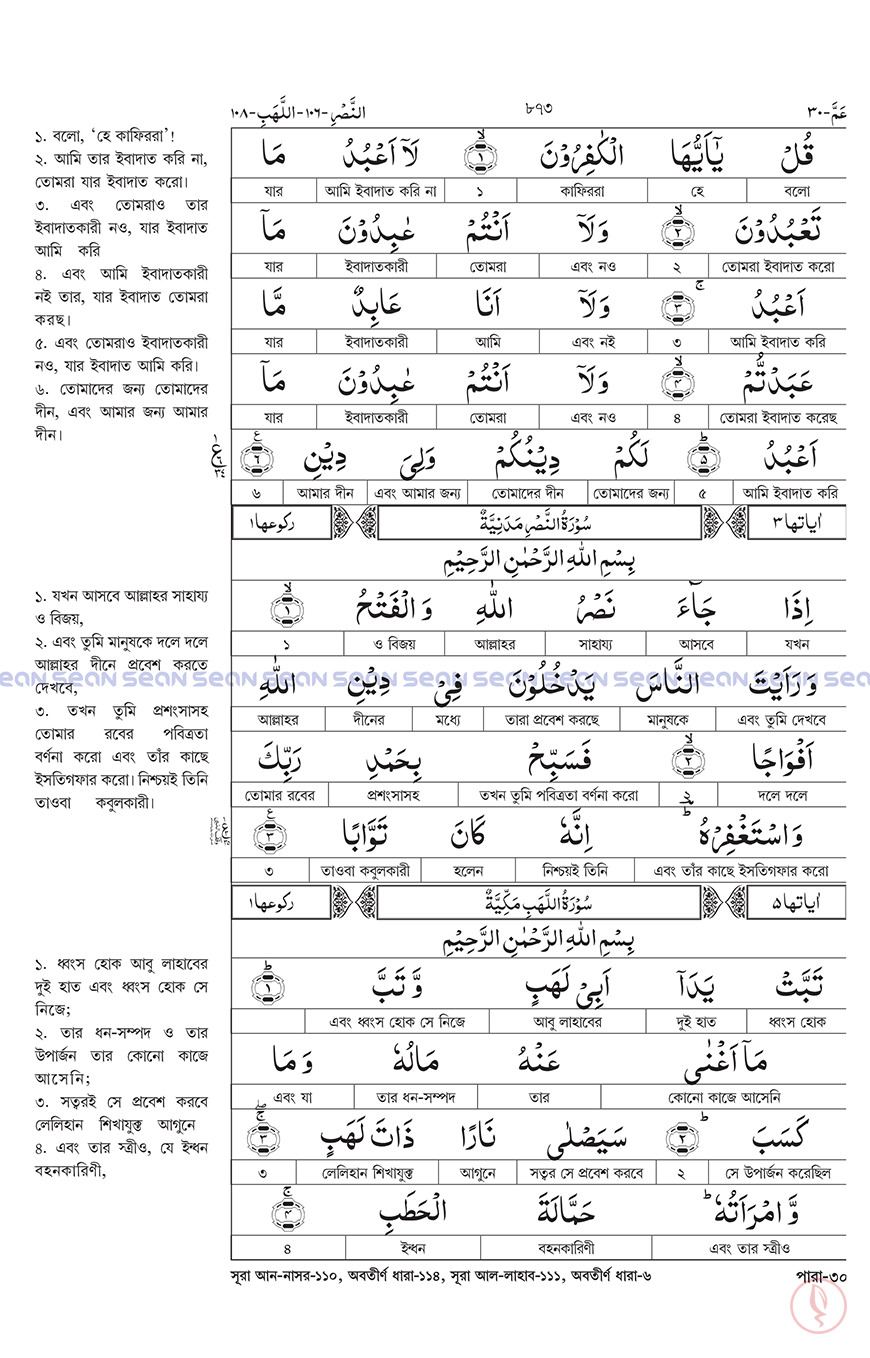 النَّصْرِ-١٠٦-اللَّهَبِ-١٠٨ ৮৭৩ عَمَّ-٣٠
قُلْ يٰۤاَيُّهَا الْكٰفِرُوْنَ ۙ﴿١﴾ لَاۤ اَعْبُدُ مَا
বলো হে কাফিররা ১ আমি ইবাদাত করি না যার
تَعْبُدُوْنَ ۙ﴿٢﴾ وَلَاۤ اَنْتُمْ عٰبِدُوْنَ مَاۤ
তোমরা ইবাদাত করো ২ এবং নও তোমরা ইবাদাতকারী যার
اَعْبُدُ ۚ﴿٣﴾ وَلَاۤ اَنَا عَابِدٌ مَّا
আমি ইবাদাত করি ৩ এবং নই আমি ইবাদাতকারী যার
عَبَدْتُّمْ ۙ﴿٤﴾ وَلَاۤ اَنْتُمْ عٰبِدُوْنَ مَاۤ
তোমরা ইবাদাত করেছ ৪ এবং নও তোমরা ইবাদাতকারী যার
اَعْبُدُ ؕ﴿٥﴾ لَكُمْ دِيْنُكُمْ وَلِيَ دِيْنِ ﴿٦﴾
আমি ইবাদাত করি ৫ তোমাদের জন্য তোমাদের দীন এবং আমার জন্য আমার দীন ৬
১. বলো, ‘হে কাফিররা’!
২. আমি তার ইবাদাত করি না,
তোমরা যার ইবাদাত করো।
৩. এবং তোমরাও তার
ইবাদাতকারী নও, যার ইবাদাত
আমি করি
৪. এবং আমি ইবাদাতকারী
নই তার, যার ইবাদাত তোমরা
করছ।
৫. এবং তোমরাও ইবাদাতকারী
নও, যার ইবাদাত আমি করি।
৬. তোমাদের জন্য তোমাদের
দীন, এবং আমার জন্য আমার
দীন।
اٰيَاتُهَا ٣ سُوْرَةُ النَّصْرِ مَدَنِيَّةٌ رُكُوْعُهَا ١
بِسْمِ اللّٰهِ الرَّحْمٰنِ الرَّحِيْمِ
اِذَا جَآءَ نَصْرُ اللّٰهِ وَالْفَتْحُ ۙ﴿١﴾
যখন আসবে সাহায্য আল্লাহর ও বিজয় ১
وَرَاَيْتَ النَّاسَ يَدْخُلُوْنَ فِيْ دِيْنِ اللّٰهِ
এবং তুমি দেখবে মানুষকে তারা প্রবেশ করছে মধ্যে দীনের আল্লাহর
اَفْوَاجًا ۙ﴿٢﴾ فَسَبِّحْ بِحَمْدِ رَبِّكَ
দলে দলে ২ তখন তুমি পবিত্রতা বর্ণনা করো প্রশংসাসহ তোমার রবের
وَاسْتَغْفِرْهُ ؕ اِنَّهٗ كَانَ تَوَّابًا ﴿٣﴾
এবং তাঁর কাছে ইসতিগফার করো নিশ্চয়ই তিনি হলেন তাওবা কবুলকারী ৩
১. যখন আসবে আল্লাহর সাহায্য
ও বিজয়,
২. এবং তুমি মানুষকে দলে দলে
আল্লাহর দীনে প্রবেশ করতে
দেখবে,
৩. তখন তুমি প্রশংসাসহ
তোমার রবের পবিত্রতা
বর্ণনা করো এবং তাঁর কাছে
ইসতিগফার করো। নিশ্চয়ই তিনি
তাওবা কবুলকারী।
sean sean sean sean sean sean sean sean
اٰيَاتُهَا ٥ سُوْرَةُ اللَّهَبِ مَكِّيَّةٌ رُكُوْعُهَا ١
بِسْمِ اللّٰهِ الرَّحْمٰنِ الرَّحِيْمِ
تَبَّتْ يَدَاۤ اَبِيْ لَهَبٍ وَّتَبَّ ؕ﴿١﴾
ধ্বংস হোক দুই হাত আবু লাহাবের এবং ধ্বংস হোক সে নিজে
مَاۤ اَغْنٰى عَنْهُ مَالُهٗ وَمَا
কোনো কাজে আসেনি তার তার ধন-সম্পদ এবং যা
كَسَبَ ؕ﴿٢﴾ سَيَصْلٰى نَارًا ذَاتَ لَهَبٍ ۚۖ﴿٣﴾
সে উপার্জন করেছিল ২ সত্বর সে প্রবেশ করবে আগুনে লেলিহান শিখাযুক্ত ৩
وَّامْرَاَتُهٗ ؕ حَمَّالَةَ الْحَطَبِ ۚ﴿٤﴾
এবং তার স্ত্রীও বহনকারিণী ইন্ধন ৪
১. ধ্বংস হোক আবু লাহাবের
দুই হাত এবং ধ্বংস হোক সে
নিজে;
২. তার ধন-সম্পদ ও তার
উপার্জন তার কোনো কাজে
আসেনি;
৩. সত্বরই সে প্রবেশ করবে
লেলিহান শিখাযুক্ত আগুনে
৪. এবং তার স্ত্রীও, যে ইন্ধন
বহনকারিণী,
সূরা আন-নাসর-১১০, অবতীর্ণ ধারা-১১৪, সূরা আল-লাহাব-১১১, অবতীর্ণ ধারা-৬ পারা-৩০